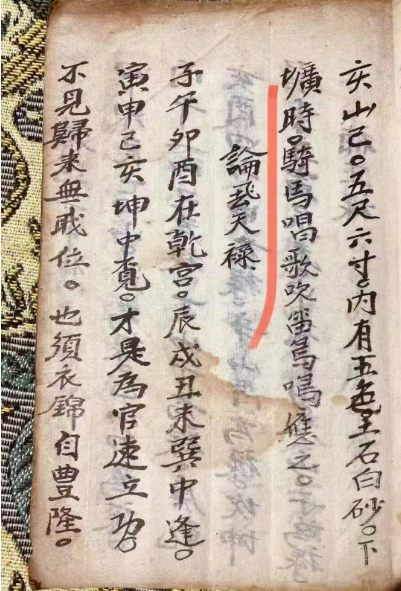 亥山己。五尺六寸。内有五色玉石白砂。下
壙時。騎馬唱歌吹笛鳥鳴應之。
論飛天禄
子午卯酉在乾宮。辰戌丑未巽中逢。
寅申己亥坤中覓。才是為官速立功。
不見歸来無戝位。也須衣錦自豊隆。